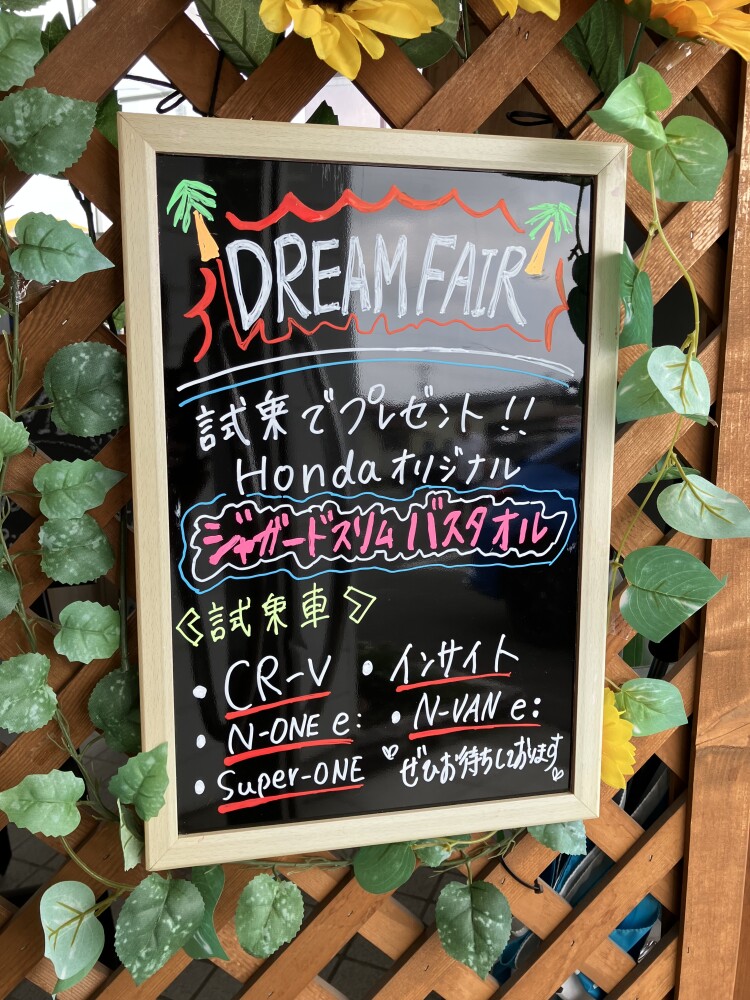 DREAM FAIR
試乗でプレゼント!!
Hondaオリジナル
ジャガードスリムバスタオル
<試乗車>
・CR-V ・インサイト
・N-ONE e: ・N-VAN e:
・Super-ONE ♡ぜひお待ちしております♡